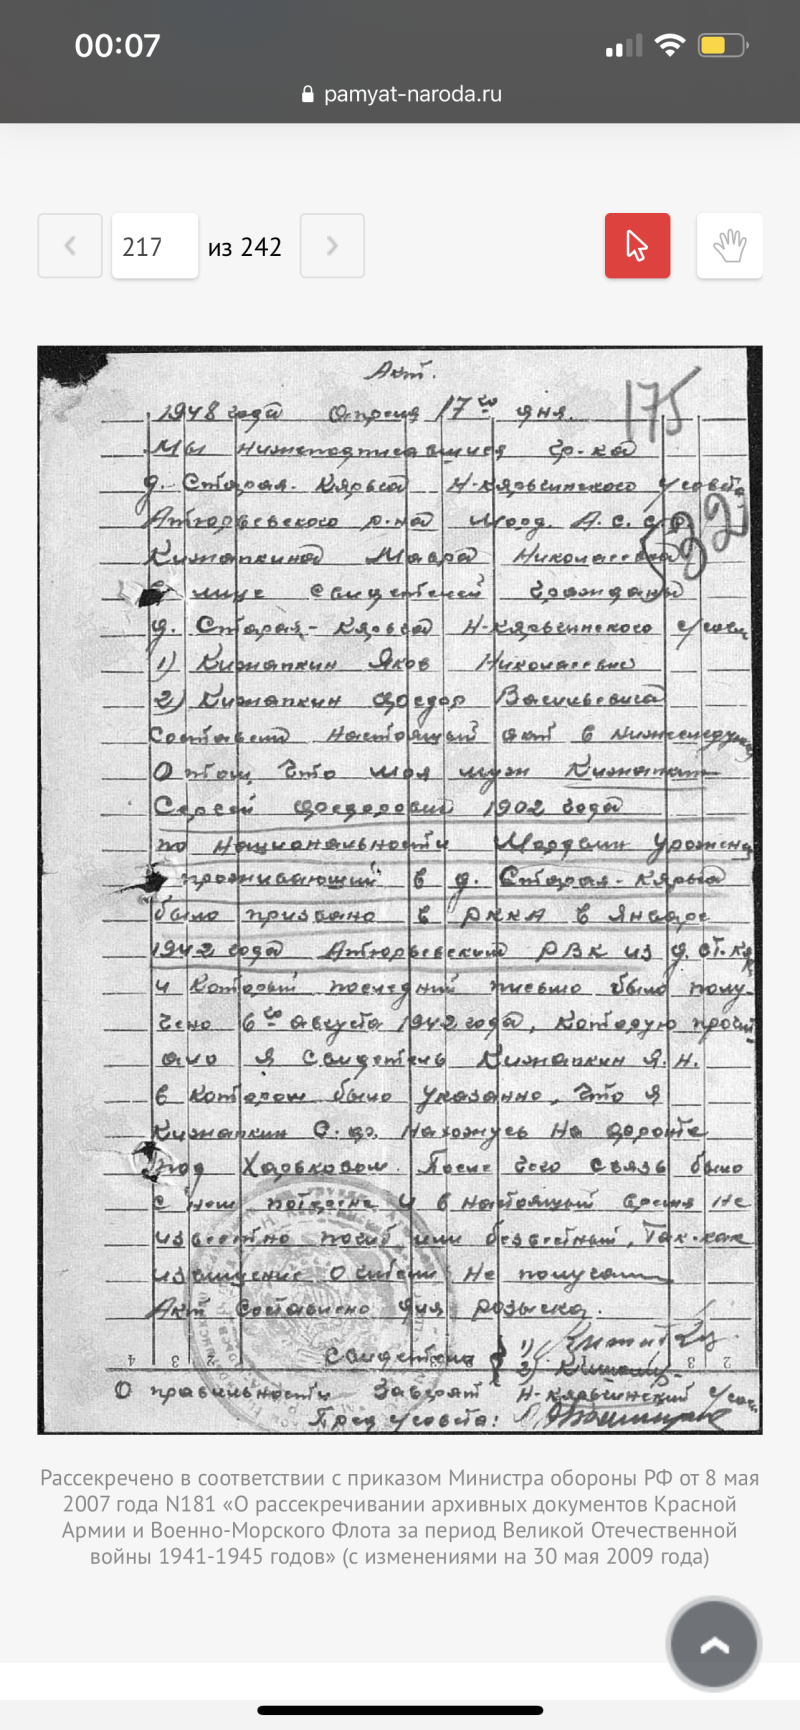 00:07
pamyat-naroda.ru
217 из 242
Акт.
175
1948 года Апреля 17го дня.
Мы нижеподписавшиеся гр-ка
д. Старая-Кярьга Н-Кярьгинского с/совета
Атюрьевского р-на Морд. А.С.С.Р
Кижапкина Мавра Николаевна
32
В лице свидетелей граждан
д. Старая-Кярьга Н-Кярьгинского с/сов
1) Кижапкин Яков Николаевич
2) Кижапкин Фоедор Васильевича
Составели настоящий акт в нижеследующ
О том, что моя муж Кижапкин
Сергей Фоедорович 1902 года
по национальности Мордвин урожен
проживающий в д. Старая-Кярьга
было призвано в РККА в Январе
1942 года Атюрьевский РВК из д. Ст.Кяр
и который последний письмо было полу-
чено 6го августа 1942 года, которую прочит
ало я свидетель Кижапкин Я.Н.
в котором было указанно, что я
Кижапкин С.Ф. нахожусь на фронте
под Харьковом. После чего связь было
с ним потеряна и в настоящий время не
известно погиб или безвестный, так-как
извищение о гибели не получали
Акт составлено для розыска.
Свидетели 1)
2)
4 3 3 2
О правильности Заверят Н-Кярьгинский с/сов
Пред с/совета:
Рассекречено в соответствии с приказом Министра обороны РФ от 8 мая
2007 года N181 «О рассекречивании архивных документов Красной
Армии и Военно-Морского Флота за период Великой Отечественной
войны 1941-1945 годов» (с изменениями на 30 мая 2009 года)